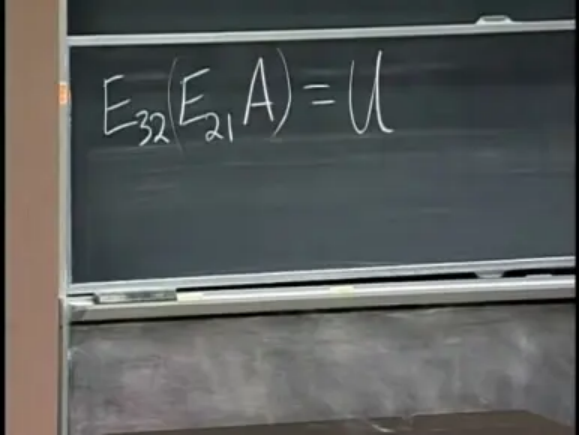 E₃₂(E₂₁A) = U